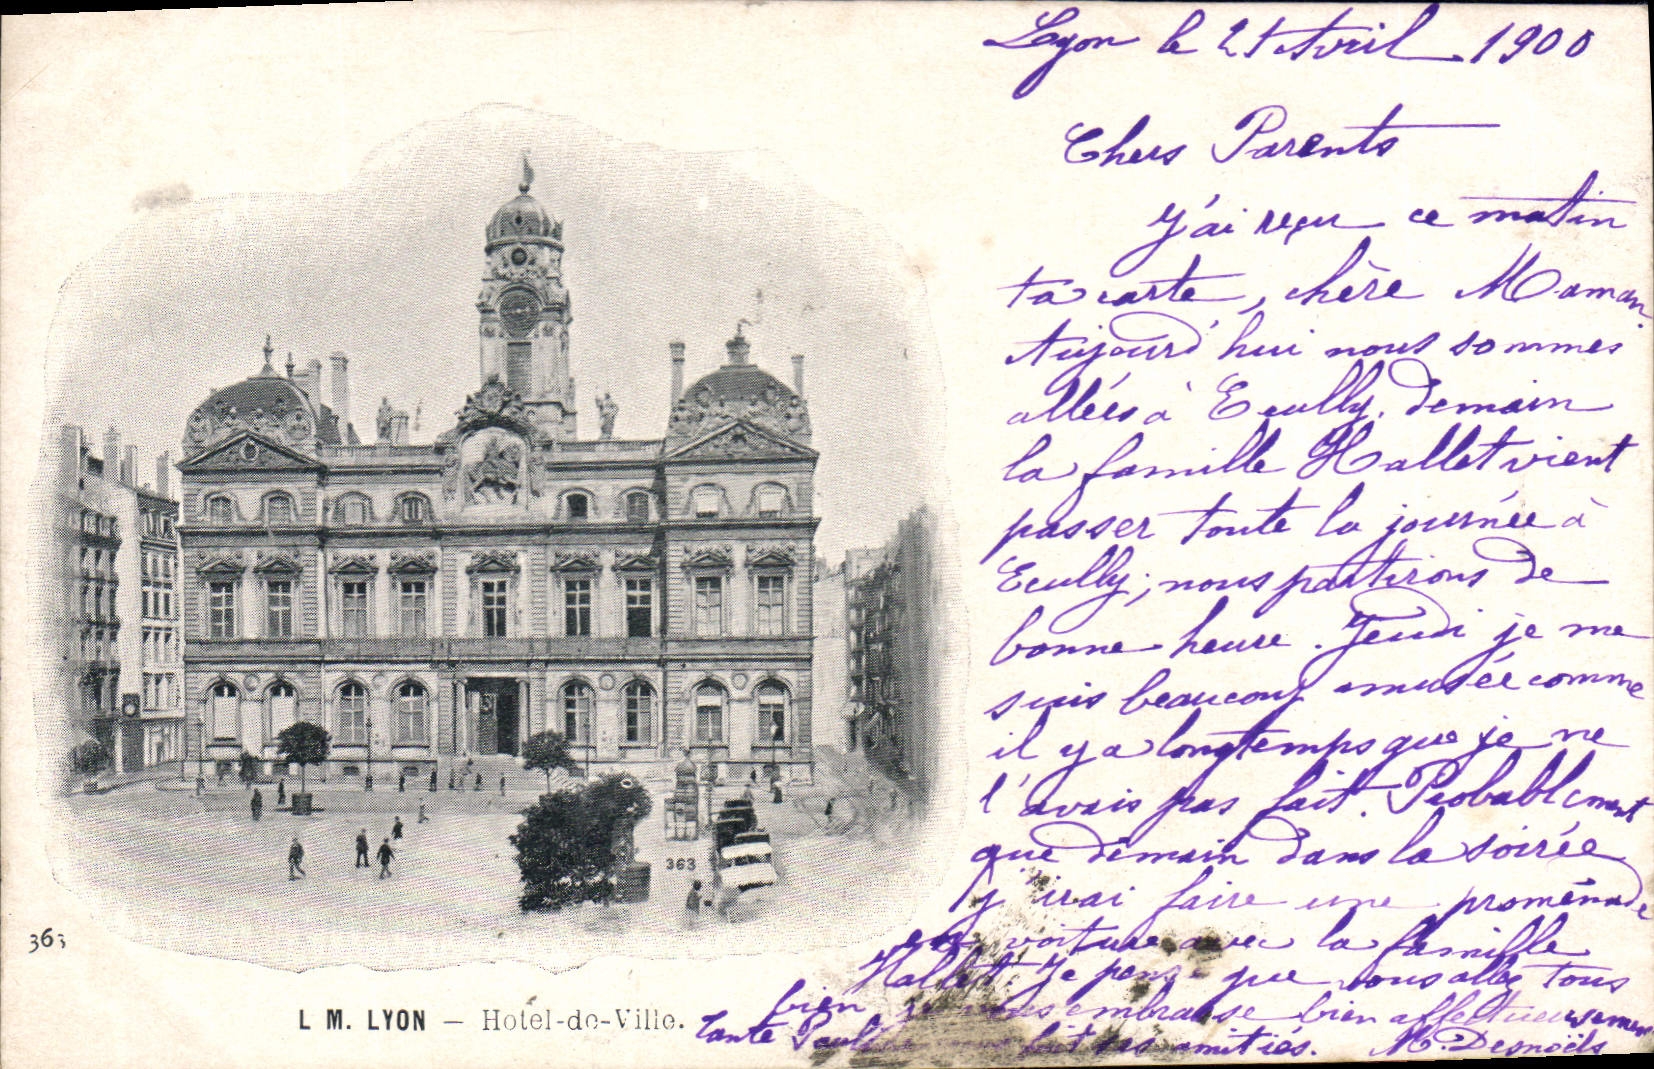 Lyon le 21 Avril 1900
Chers Parents
J'ai reçu ce matin
ta carte, chère Maman.
Aujourd'hui nous sommes
allées à Ecully. Demain
la famille Hallet vient
passer toute la journée à
Ecully; nous partirons de
bonne heure. Jeudi je me
suis beaucoup amusée comme
il y a longtemps que je ne
l'avais pas fait. Probablement
que demain dans la soirée
j'irai faire une promenade
en voiture avec la famille
Hallet. Je pense que vous allez tous
bien je vous embrasse bien affectueusement
Tante fait ses amitiés. M. Desnoëls
363
363
L M. LYON — Hotel-de-Ville.